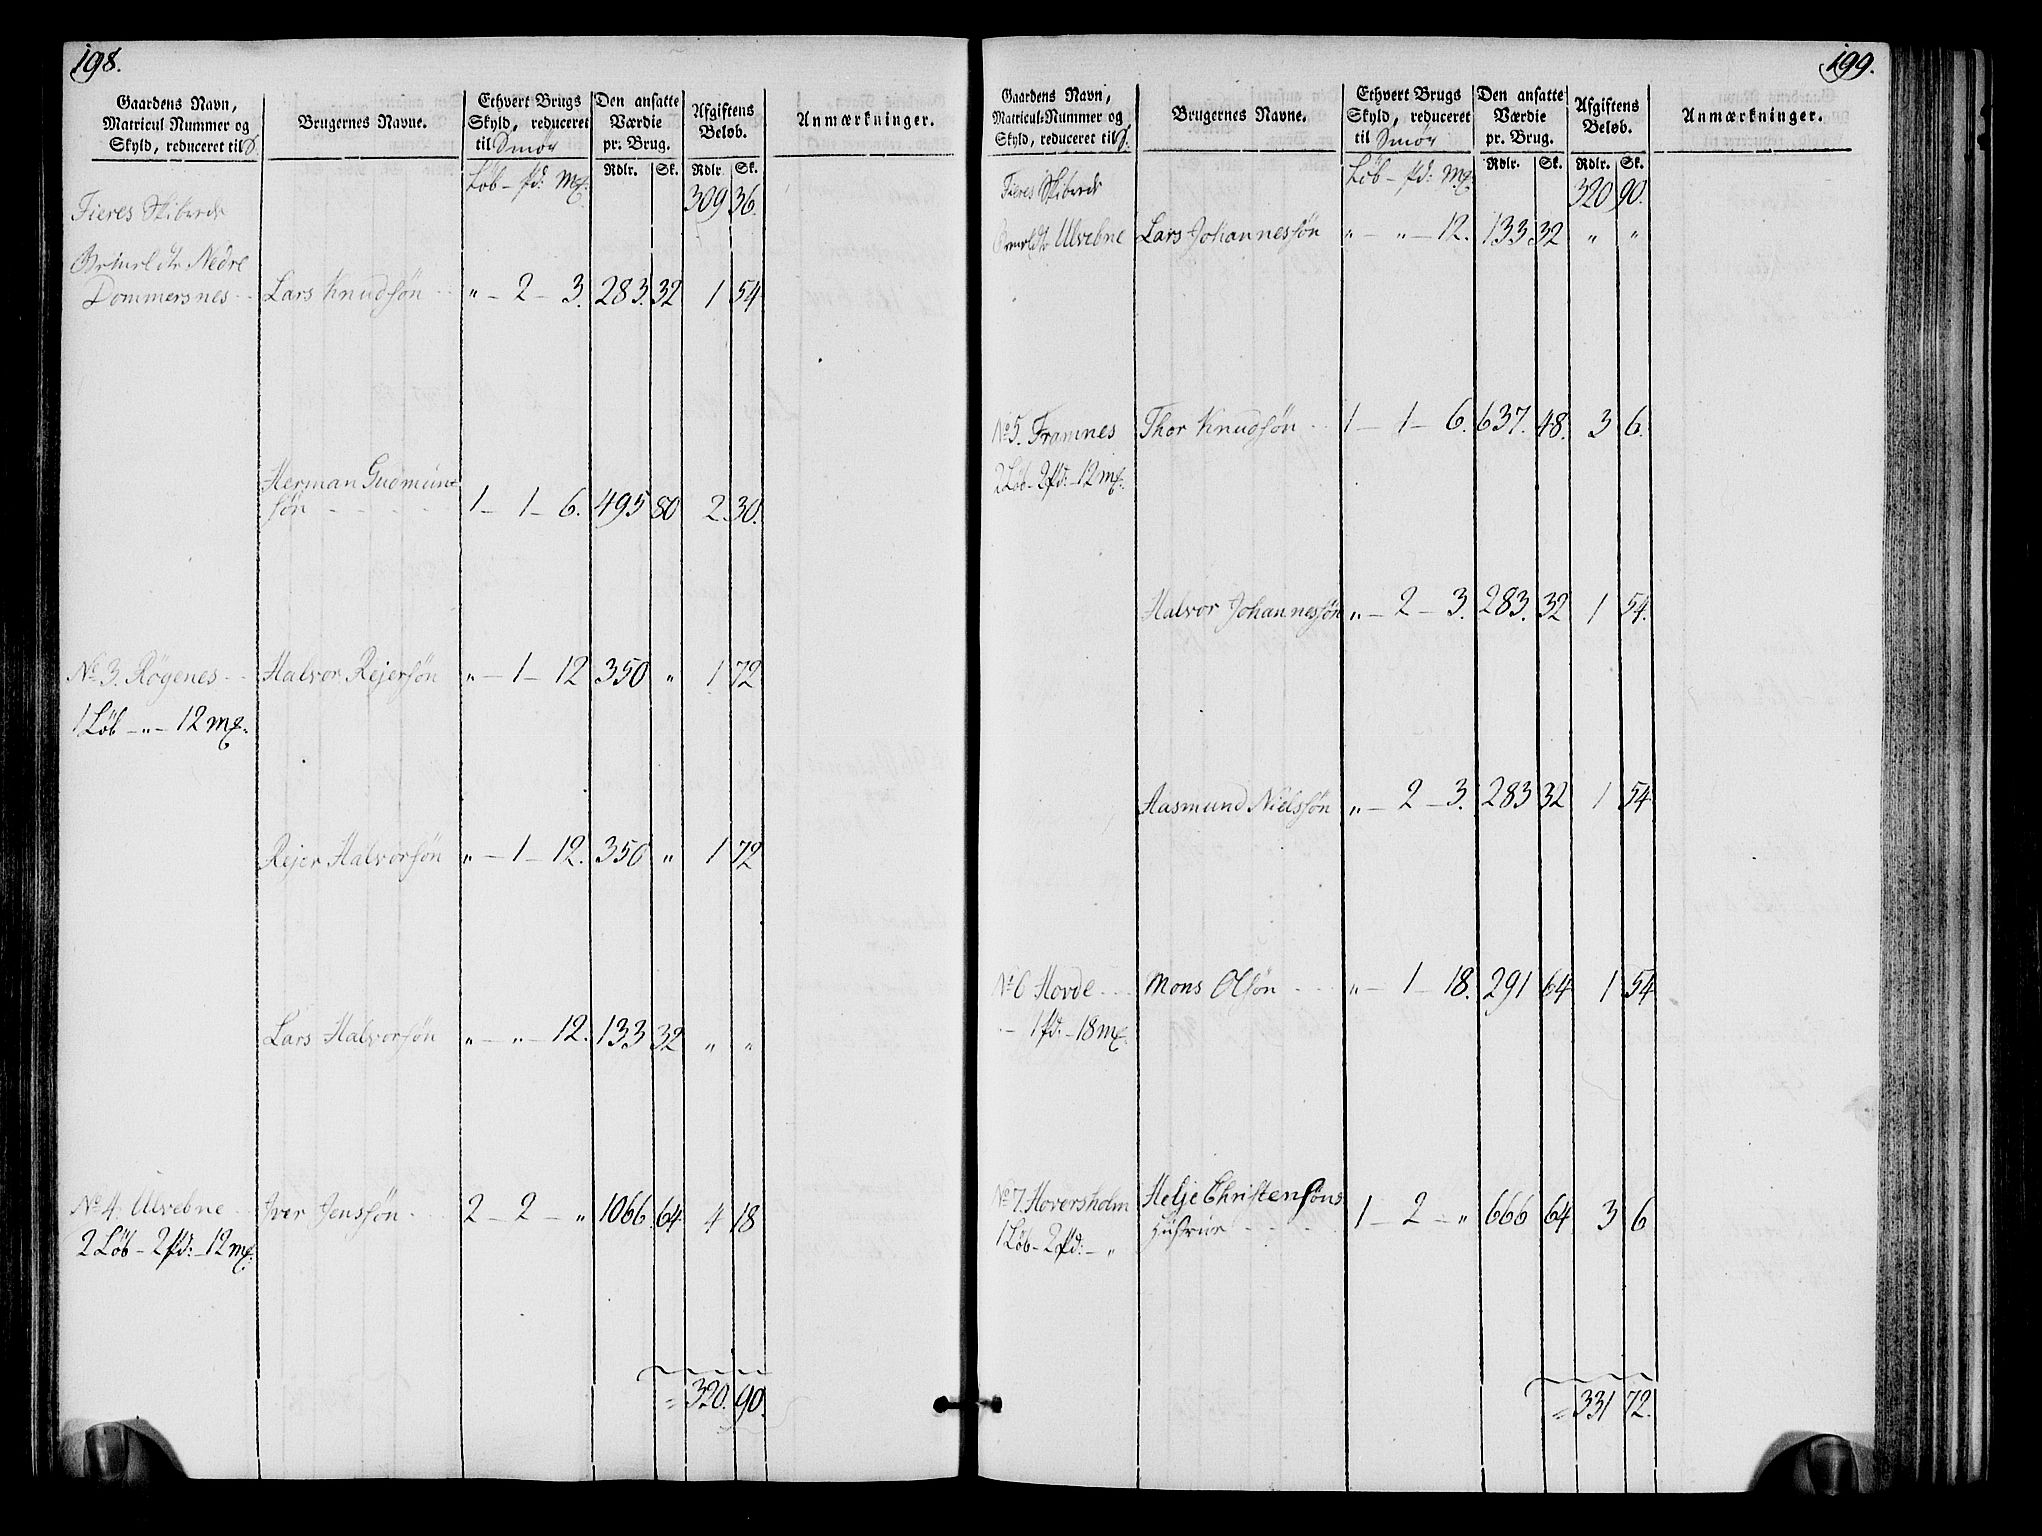 198.
Gaardens Navn, Matricul Nummer og Skyld, reduceret til
Brugernes Navne.
Ethvert Brugs Skyld, reduceret til Smör
Den ansatte Værdie pr. Brug.
Afgiftens Beløb.
Anmærkninger.
Löb – pd: mk:
Rdlr. Sk. Rdlr. Sk.
Fieres Skibrede 309 36.
Nedre
Dommersnes Lars Knudsön " – 2 – 3. 283. 32 1 54
Herman Gudmund-
sön 1 – 1 – 6. 495 80 2. 30.
No 3. Rögenes Halvor Rejersön " – 1 – 12 350 " 1 72
1 Löb – " – 12 mk.
Rejer Halvorsön " – 1 – 12. 350 " 1 72
Lars Halvorsön " – " – 12. 133 32 " "
No 4. Ulvebne Iver Jenssön 2 – 2 – " 1066 64 4 18
2 Löb – 2 pd: – 12 mk:
320. 90.
199.
Gaardens Navn, Matricul-Nummer og Skyld, reduceret til
Brugernes Navne.
Ethvert Brugs Skyld, reduceret til Smör
Den ansatte Værdie pr. Brug.
Afgiftens Beløb.
Anmærkninger.
Löb – pd: mk:
Rdlr. Sk. Rdlr. Sk.
Fieres Skibrede 320 90.
Ulvebne Lars Johannessön " – " – 12. 133 32 " "
No 5. Framnes Thor Knudsön 1 – 1 – 6. 637. 48. 3 6.
2 Löb – 2 pd: – 12 mk.
Halvor Johannessön " – 2 – 3. 283. 32 1 54.
Aasmund Nielssön " – 2 – 3. 283 32 1 54
No 6 Hovde Mons Olsön " – 1 – 18. 291 64 1 54
" – 1 pd. – 18 mk.
No 7. Hoversholm Helje Christensöns
1 Löb – 2 pd: – " Hustrue 1 – 2 – " 666 64 3 6
331 72.